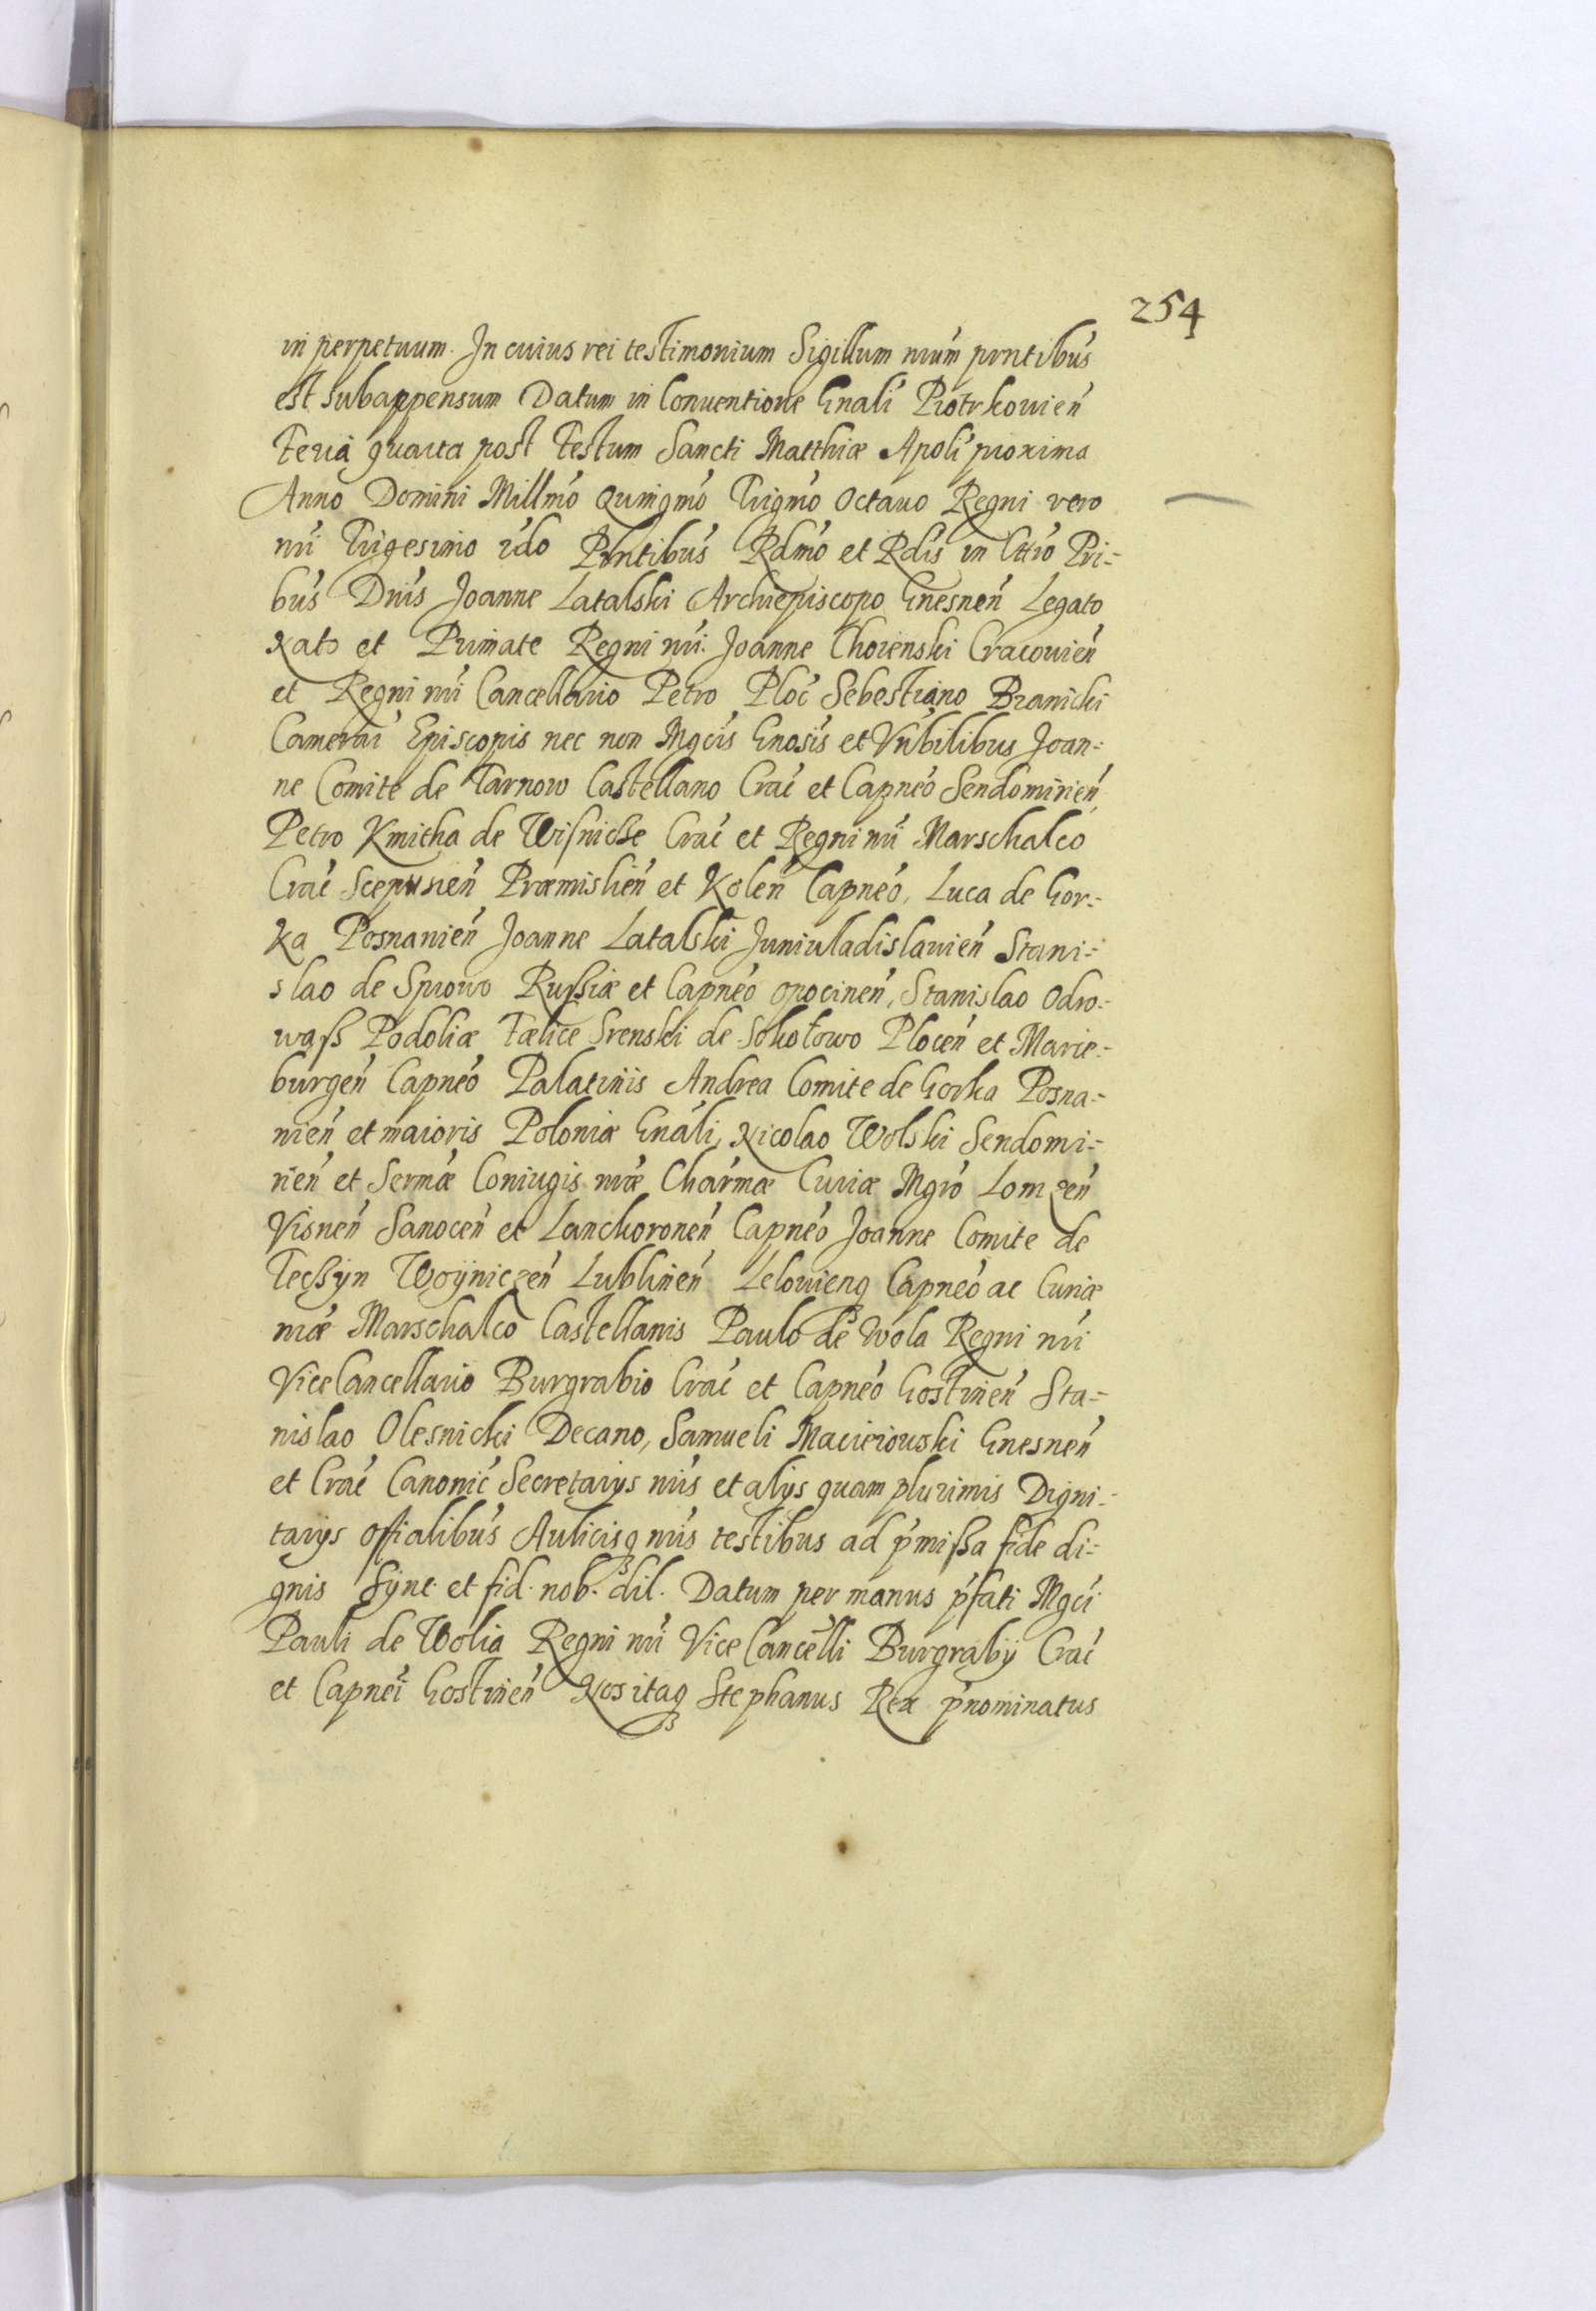 254
in perpetuum. In cuius rei testimonium Sigillum nrum̃ prntibus
est subappensum Datum in Conuentione Gnali Piotrkouien̄
Feria quarta post Festum Sancti Matthiæ Apoli proxima
Anno Domini Millmo Quingmo Trigmo Octauo Regni vero
nri Trigesimo 2do Prntibus Rdmo et Rdis in Chro Pri-:
bus Dnis Joanne Latalski Archiepiscopo Gnesnen̄ Legato
Nato et Primate Regni nri. Joanne Choienski Cracouien̄
et Regni nri Cancellario Petro Ploc̄ Sebestiano Branicki
Camerai Episcopis nec non Mgcis Gnosis et Nubilibus Joan-:
ne Comite de Tarnow Castellano Crac̄ et Capneo Sendomirien̄,
Petro Kmitha de Wisnicze Crac̄ et Regni nri Marschalco
Crac̄ Scepusien̄ Præmislien̄ et Kolen̄ Capneo, Luca de Gor-:
ka Posnanien̄ Joanne Latalski Juniuladislauien̄ Stani-:
slao de Sprowo Russiæ et Capneo opocinen̄, Stanislao Odro-:
wąss Podoliæ Fælice Srenski de Sokołowo Plocen̄ et Marie-:
burgen̄ Capneo Palatinis Andrea Comite de Gorka Posna-:
nien̄ et maioris Poloniæ Gnali, Nicolao Wolski Sendomi-:
rien̄ et Sermæ Coniugis nræ Charmæ Curiæ Mgro Lomzen̄
Visnen̄ Sanocen̄ et Lanckoronen̄ Capneo Joanne Comite de
Tecssyn Woÿniczen̄ Lublinen̄ Lelouienq Capneo ac Curiæ
nræ Marschalco Castellanis Paulo de Wola Regni nri
ViceCancellario Burgrabio Crac̄ et Capneo Gostinen̄ Sta-:
nislao Olesnicki Decano, Samueli Macieiouski Gnesnen̄
et Crac̄ Canonic̄ Secretarijs nris et alijs quam plurimis Digni-:
tarijs offialibus Aulicisq nris testibus ad p̄missa fide di-:
gnis Sÿnc. et fid. nob. dil. Datum per manus p̄fati Mgci
Pauli de Wolia Regni nri Vice Cancelli Burgrabij Crac̄
et Capnei Gostinen̄ Nos itaq Stephanus Rex p̄nominatus